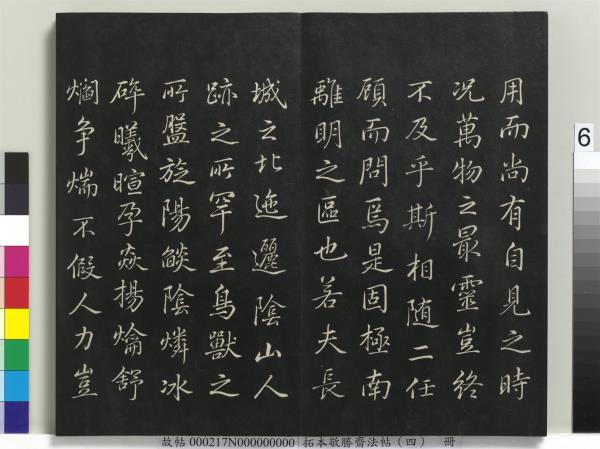 用而尚有自見之時
况萬物之最靈豈終
不及乎斯相随二任
頋而問焉是固極南
離明之區也若夫長
城之北迤邐陰山人
跡之所罕至鳥獸之
所盤旋陽燄陰燐冰
碎曦暄孕焱揚爚舒
爓争煓不假人力豈
6
故帖 000217N000000000 拓本敬勝齋法帖（四） 冊